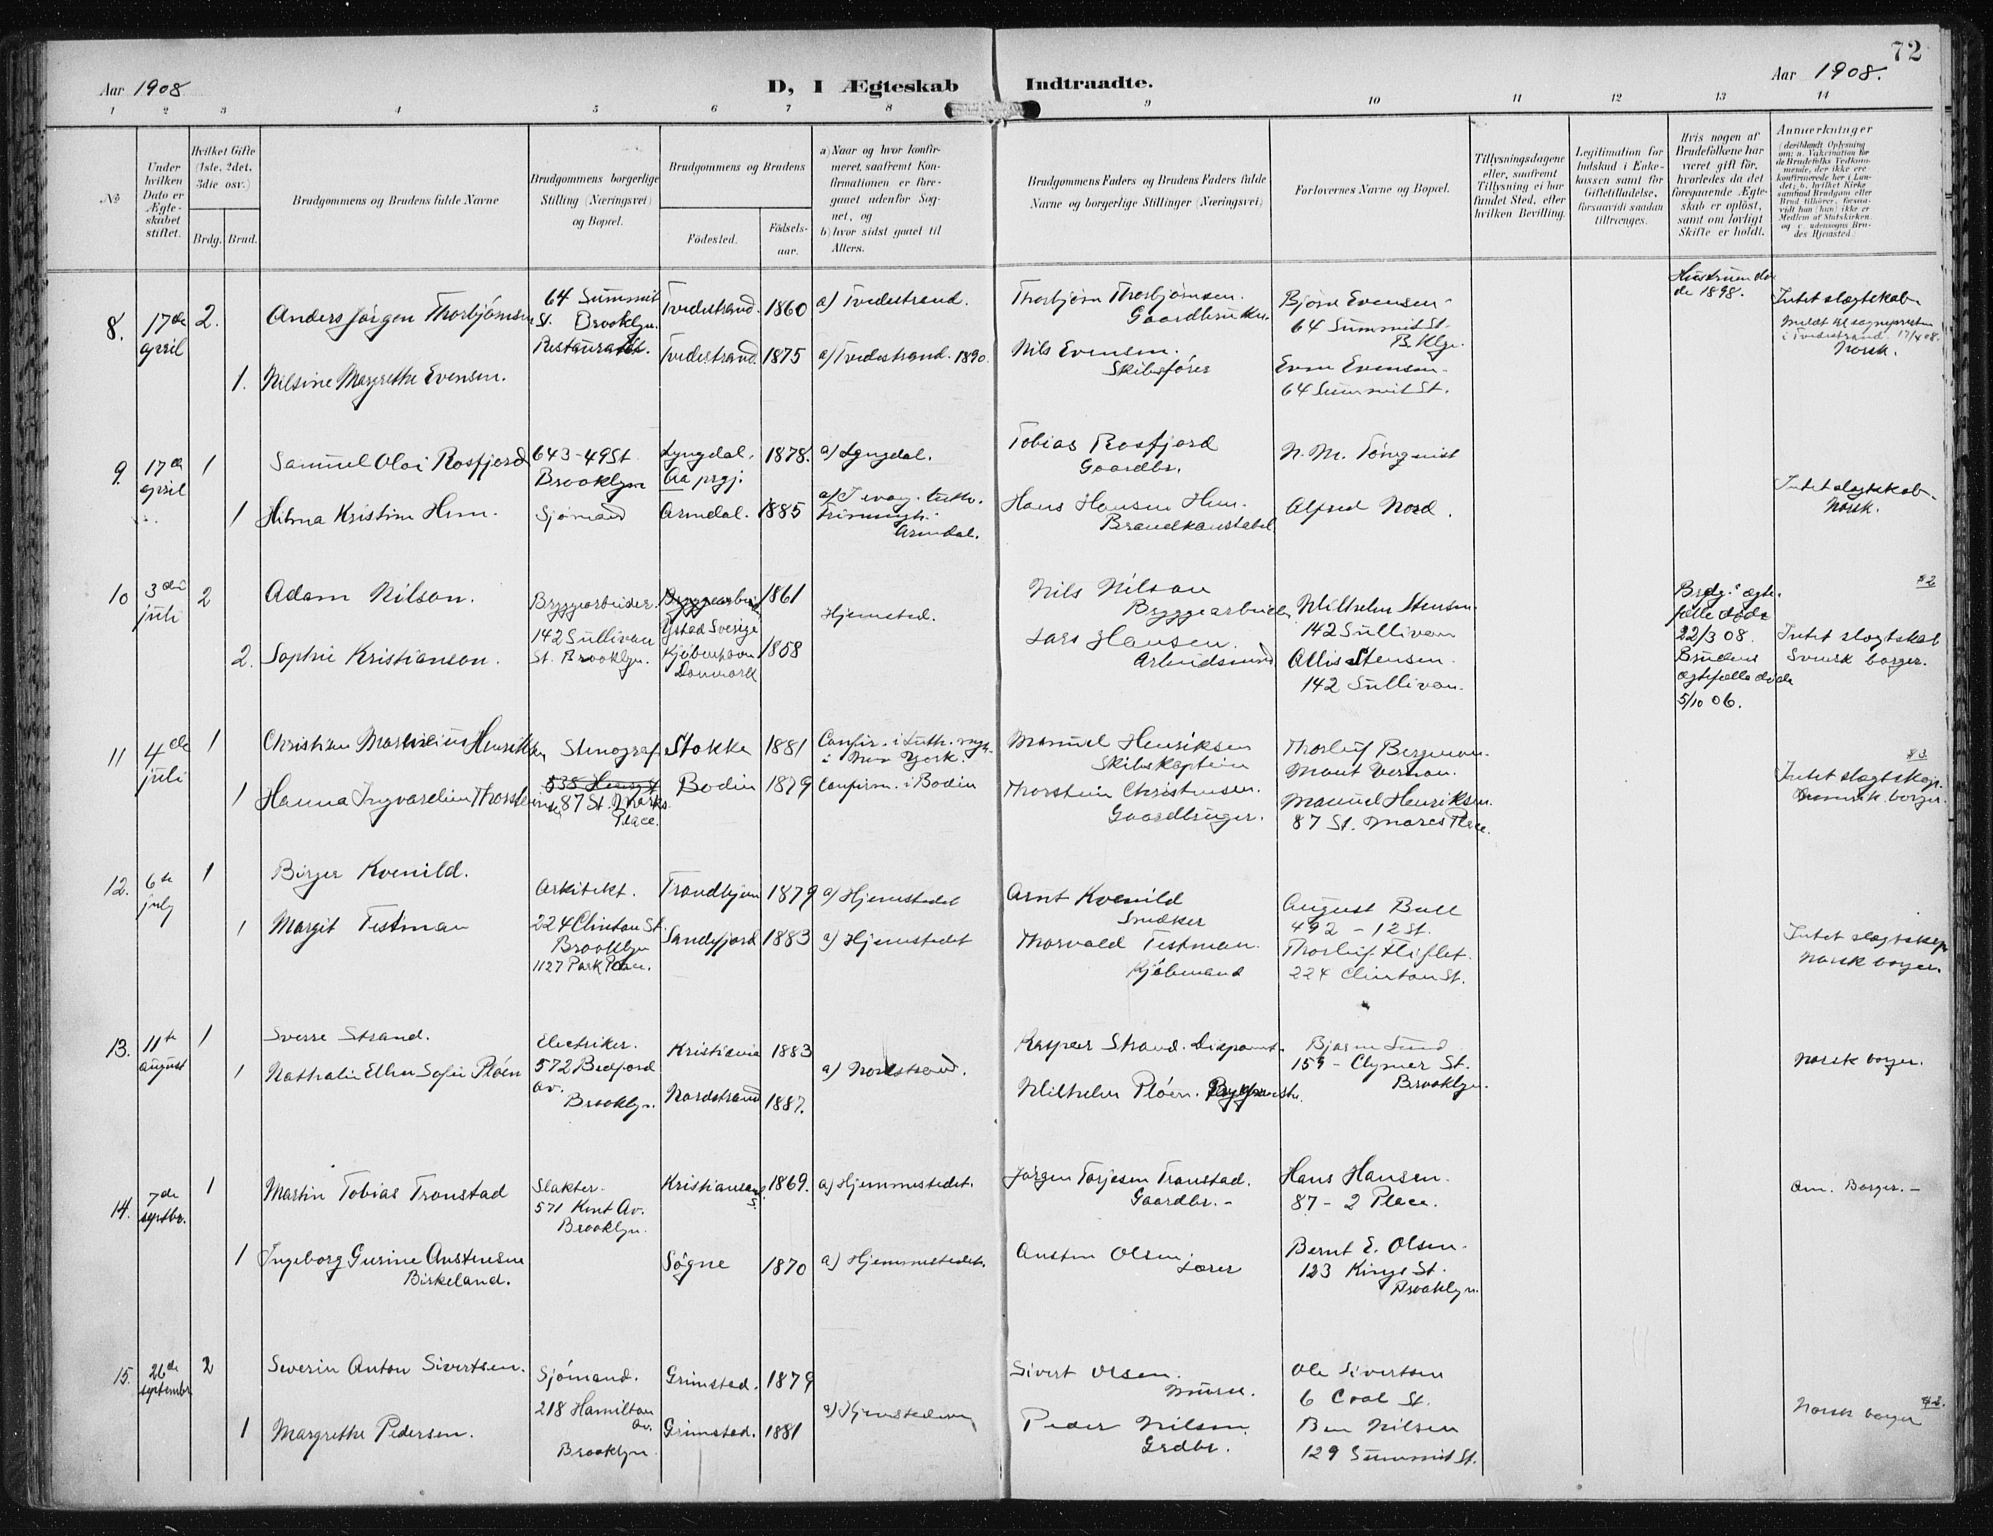 72
Aar 1908
D, I Ægteskab Indtraadte.
Aar 1908.
1 2 3 4 5 6 7 8 9 10 11 12 13 14
№
Under hvilken Dato er Ægteskabet stiftet.
Hvilket Gifte (1ste, 2det, 3die osv.)
Brdg. Brud.
Brudgommens og Brudens fulde Navne
Brudgommens borgerlige Stilling (Næringsvei) og Bopæl.
Brudgommens og Brudens
Fødested.
Fødsels-
aar.
a) Naar og hvor konfir-
meret, saafremt Kon-
firmationen er fore-
gaaet udenfor Sog-
net, og
b) hvor sidst gaaet til
Alters.
Brudgommens Faders og Brudens Faders fulde
Navne og borgerlige Stillinger (Næringsvei)
Forlovernes Navne og Bopæl.
Tillysningsdagene
eller, saafremt
Tillysning ei har
fundet Sted, efter
hvilken Bevilling.
Legitimation for
Indskud i Enke-
kassen samt for
Giftetilladelse,
forsaavidt saadan
tiltrænges.
Hvis nogen af
Brudefolkene har
været gift før,
hvorledes da det
foregaaende Ægte-
skab er opløst,
samt om lovligt
Skifte er holdt.
Anmærkninger
(deriblandt Oplysning
om: a. Vakcination for
de Brudefolks Vedkom-
mende, der ikke ere
konfirmerede her i Lan-
det; b. hvilket Kirke-
samfund Brudgom eller
Brud tilhører, forsaa-
vidt han (hun) ikke er
Medlem af Statskirken,
og c. udensogns Bru-
des Hjemsted.)
8. 17de april 2. Anders Jørgen Thorbjörnsen
64 Summit
St. Brooklyn.
Restauratör.
Tvedestrand. 1860 a) Tvedestrand.
Thorbjörn Thorbjörnsen.
Gaardbruker
Bjorn Evensen
64 Summit St.
B.Klyn.
Hustruen dö
de 1898.
Intet slægtskab
Meldt til sognepresten
i Tvedestrand 17/4 08.
Norsk.
1. Nilsine Margrethe Evensen.
Tvedestrand 1875 a) Tvedestrand. 1890.
Nils Evensen.
Skibsfører
Even Evensen
64 Summit St.
9. 17de april 1 Samuel Olai Rosfjord
643-49 St
Brooklyn
Lyngdal.
Aa prgj.
1878. a) Lyngdal.
Tobias Rosfjord
Gaardbr.
N. M. Törnquist
Intet slægtskab.
Norsk.
1 Hilma Kristine Hem.
Sjömand
Arendal. 1885
Arendal.
Hans Hansen Hem.
Brandkonstabel
Alfred Nord.
10 3die juli 2 Adam Nilson.
Bryggearbeider.
142 Sullivan
St. Brooklyn.
Ystad Sverige 1861
Hjemsted.
Nils Nilson
Bryggearbeider
Wilhelm Stensen
142 Sullivan
Brdg.s ægte-
fælle döde
22/3 08.
Brudens
ægtefælle döde
5/10 06.
Intet slægtskab
Svensk borger.
2. Sophie Kristianson.
Kjöbenhavn 1858
Danmark
Lars Hansen.
Arbeidsmand
Allis Stensen.
142 Sullivan.
11 4de juli 1 Christian Martinius Henriksen
Stenograf
538 Henry St
87 St. Marks
Place.
Stokke 1881
Confir. i Luth.
i New York.
Manuel Henriksen
Skibskaptein
Thorleif Bergman.
Mount Vernon.
Intet slægtskap.
Amerik. borger.
1 Hanna Ingvardine Thorsteinsen
Bodin 1879 Confirm. i Bodin
Thorstein Christensen.
Gaardbruger.
Manuel Henriksen.
87 St. Marcs Place.
12. 6te july 1 Birger Kvenild.
Arkitekt.
224 Clinton St.
Brooklyn
1127 Park Place.
Trondhjem 1879 a) Hjemstedet
Arnt Kvenild
Snedker
August Bull
492 - 12 St.
Intet slægtskap
Norsk borger
1 Margit Testman
Sandefjord 1883 a) Hjemstedet
Thorvald Testman.
Kjöbmand
Thorleif Fliflet.
224 Clinton St.
13. 11te august 1 Sverre Strand.
Electriker.
572 Bedford
Av.
Brooklyn.
Kristiania 1883
Kasper Strand. Disponent.
Bjarne Lund
159 - Clymer St.
Brooklyn.
Norsk borger.
1 Nathalie Ellen Sofie Plöen
Nordstrand 1887.
a) Nordstrand.
Wilhelm Plöen.
14. 7de septbr. 1 Martin Tobias Tronstad
Slakter.
571 Kent Av.
Brooklyn.
Kristiansand S. 1869. a) Hjemmestedet.
Jörgen Torjesen Tronstad.
Gaardbr.
Hans Hansen.
87 - 2 Place.
Am. Borger.
1 Ingeborg Gurine Austensen
Birkeland.
Sögne 1870 a) Hjemmestedet.
Austen Olsen.
Lærer
Bernt E. Olsen.
123 King St.
Brooklyn.
15. 26de septembr 2 Severin Anton Sivertsen.
Sjömand.
218 Hamilton
Av.
Brooklyn.
Grimstad. 1879
Sivert Olsen.
Murer.
Ole Sivertsen
6 Coal St.
Norsk borger
1 Margrethe Pedersen.
Grimstad. 1881
Peder Nilsen
Grdbr.
Ben Nilsen
129 Summit St.